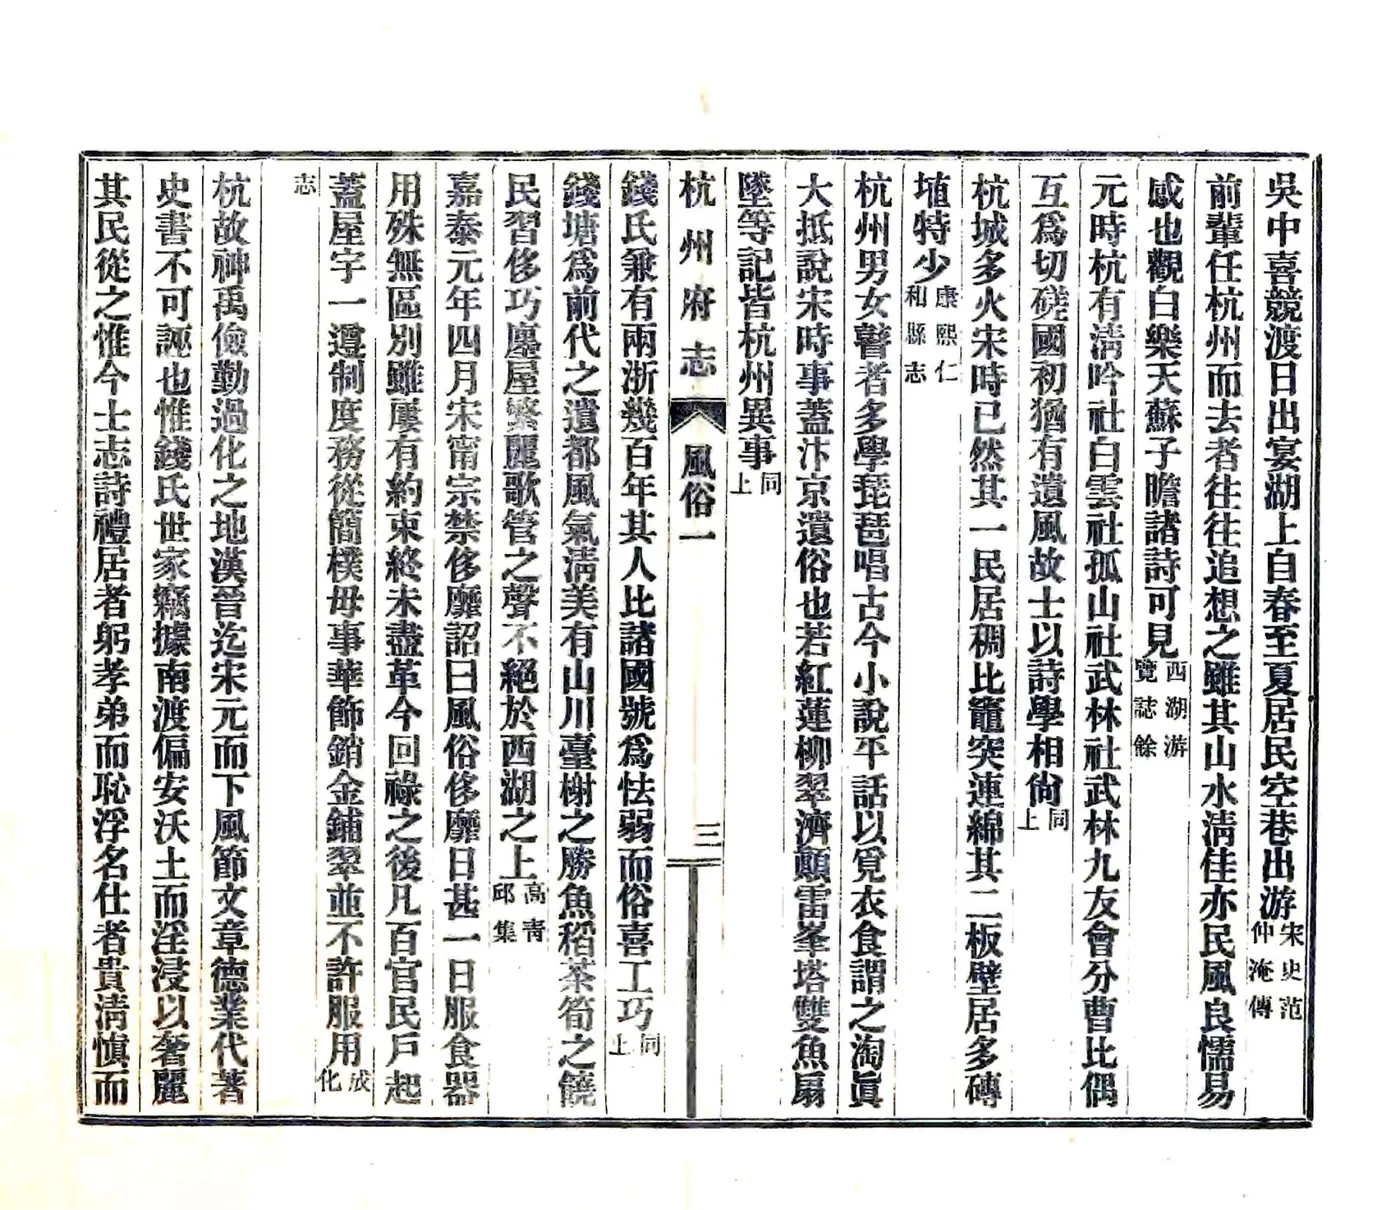 吳中喜競渡日出宴湖上自春至夏居民空巷出游宋史范仲淹傳
前輩任杭州而去者往往追想之雖其山水淸佳亦民風良懦易
感也觀白樂天蘇子瞻諸詩可見西湖游覽誌餘
元時杭有淸吟社白雲社孤山社武林社武林九友會分曹比偶
互爲切磋國初猶有遺風故士以詩學相尙同上
杭城多火宋時已然其一民居稠比竈突連綿其二板壁居多磚
埴特少康熙仁和縣志
杭州男女瞽者多學琵琶唱古今小說平話以覓衣食謂之淘眞
大抵說宋時事蓋汴京遺俗也若紅蓮柳翠濟顚雷峯塔雙魚扇
墜等記皆杭州異事同上
杭州府志 風俗一 三
錢氏兼有兩浙幾百年其人比諸國號爲怯弱而俗喜工巧同上
錢塘爲前代之遺都風氣淸美有山川臺榭之勝魚稻茶筍之饒
民習侈巧廛屋繁麗歌管之聲不絕於西湖之上高靑邱集
嘉泰元年四月宋甯宗禁侈靡詔曰風俗侈靡日甚一日服食器
用殊無區別雖屢有約束終未盡革今回祿之後凡百官民戶起
蓋屋宇一遵制度務從簡樸毋事華飾銷金鋪翠並不許服用成化
志
杭故神禹儉勤過化之地漢晉迄宋元而下風節文章德業代著
史書不可誣也惟錢氏世家竊據南渡偏安沃土而淫浸以奢麗
其民從之惟今士志詩禮居者躬孝弟而恥浮名仕者貴淸愼而